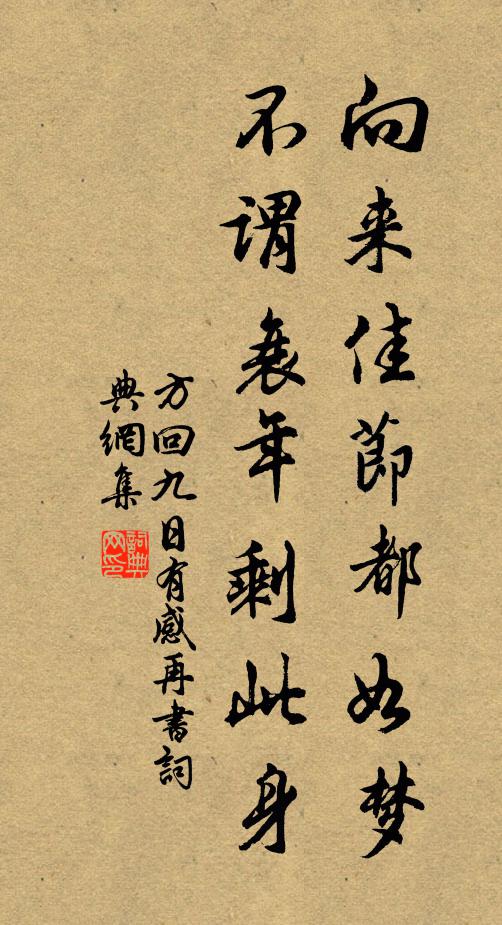 向来佳節都如梦
不謂衰年剩此身
方回九日有感再書詞
典網集
詞典
网印